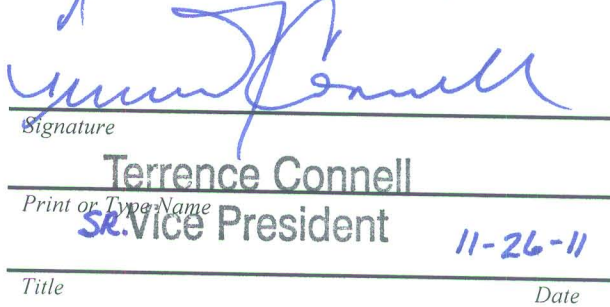 Signature
Terrence Connell
Print or Type Name
SR. Vice President 11-26-11
Title Date